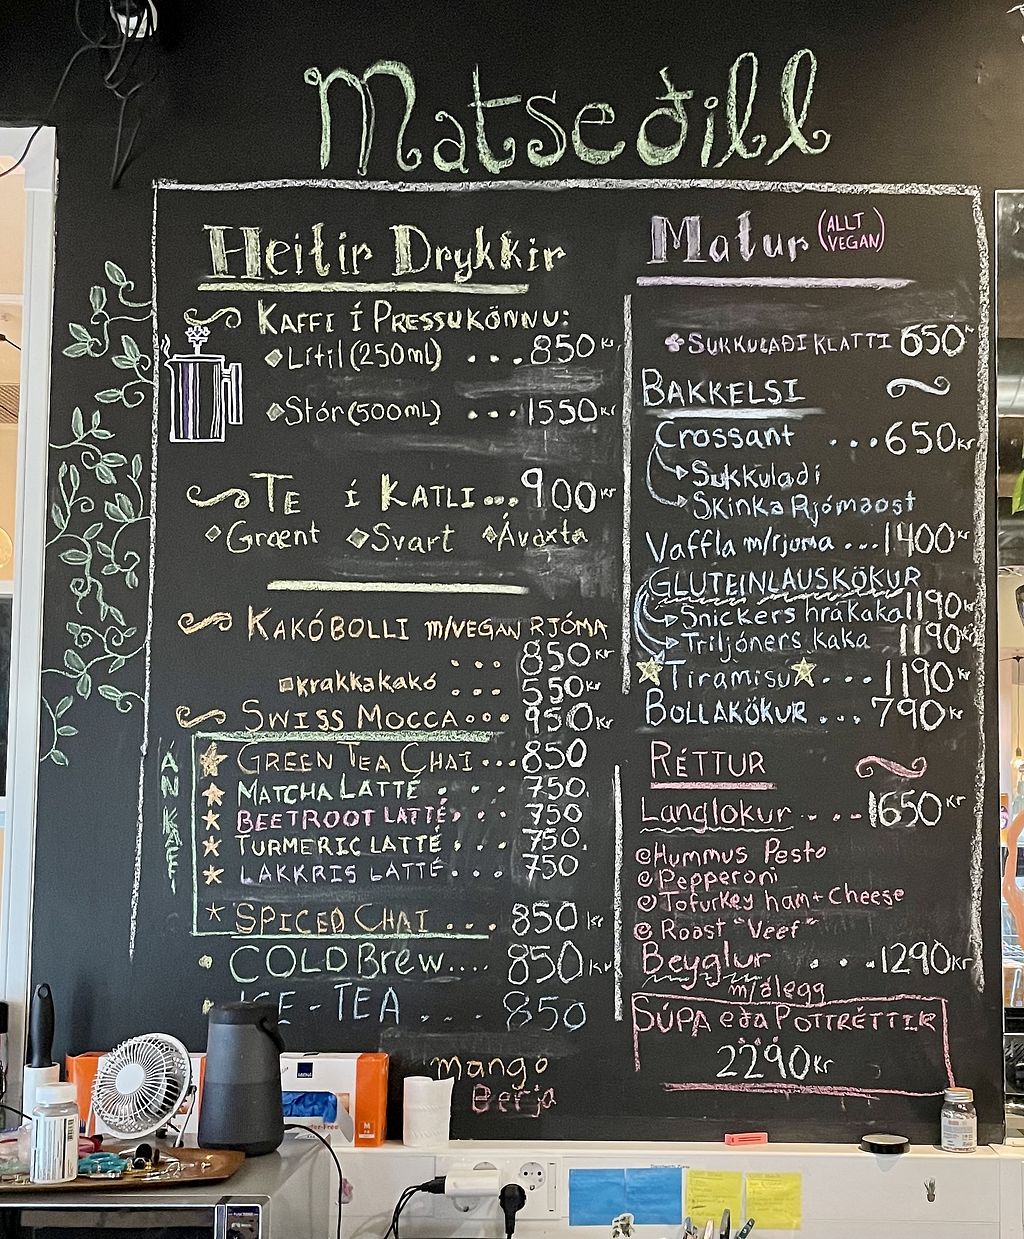 Matseðill
Heitir Drykkir
KAFFI Í PRESSUKÖNNU:
Lítil (250ml) ... 850 kr
Stór (500ml) ... 1550 kr
TE í KATLI ... 900 kr
Grænt Svart Ávaxta
KAKÓBOLLI m/VEGAN RJÓMA
... 850 kr
krakkakakó ... 550 kr
SWISS MOCCA ... 950 kr
ÁN KAFFI
GREEN TEA CHAI ... 850
MATCHA LATTÉ . . . 750.
BEETROOT LATTÉ . . . 750
TURMERIC LATTÉ . . . 750.
LAKKRIS LATTÉ . . . 750
SPICED CHAI ... 850 kr
COLD Brew.... 850 kr
ICE-TEA ... 850
mango
Berja
Matur (ALLT VEGAN)
SUKKULAÐI KLATTI 650 kr
BAKKELSI
Crossant ... 650 kr
Sukkulaði
Skinka Rjómaost
Vaffla m/rjóma ... 1400 kr
GLUTEINLAUSKÖKUR
Snickers hrákaka 1190 kr
Triljóners kaka 1190 kr
Tiramisu ... 1190 kr
BOLLAKÖKUR ... 790 kr
RÉTTUR
Langlokur ... 1650 kr
Hummus Pesto
Pepperoni
Tofurkey ham + Cheese
Roast "Veef"
Beyglur ... 1290 kr
m/álegg
SÚPA eða POTTRÉTTIR
2290 kr